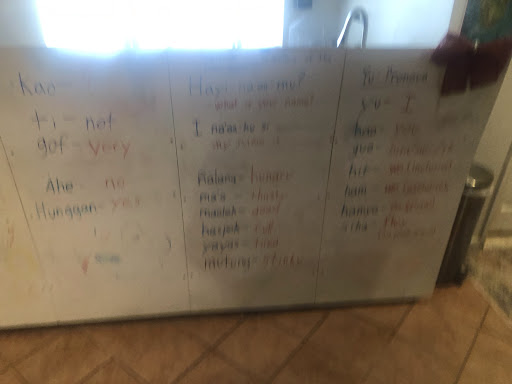 Kao
ti - not
gof - very
Ahe - no
Hunggan - yes
Hayi na'an-mu?
what is your name?
I na'an-hu si
my name is
Ñalang - hungry
ma'o - thirsty
maolek - good
haspok - full
yayas - tired
Yo Pronoun
yu' - I
hao - you
gue'
hit - we (inclusive)
ham - we
hamyo
siha - they